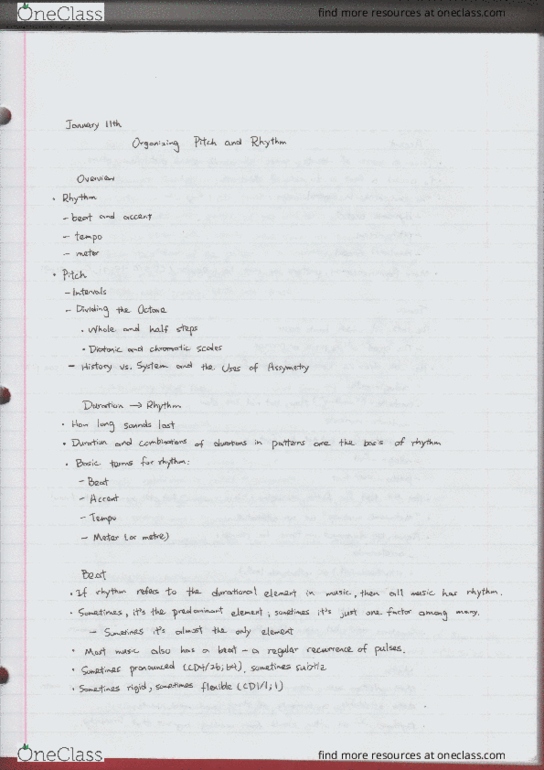 OneClass
find more resources at oneclass.com
January 11th
Organizing Pitch and Rhythm
Overview
• Rhythm
- beat and accent
- tempo
- meter
• Pitch
- Intervals
- Dividing the Octave
• Whole and half steps
• Diatonic and chromatic scales
- History vs. System and the Uses of Assymetry
Duration → Rhythm
• How long sounds last
• Duration and combinations of durations in patterns are the basis of rhythm
• Basic terms for rhythm:
- Beat
- Accent
- Tempo
- Meter (or metre)
Beat
• If rhythm refers to the durational element in music, then all music has rhythm.
• Sometimes, it's the predominant element; sometimes it's just one factor among many.
- Sometimes it's almost the only element
• Most music also has a beat - a regular recurrence of pulses.
• Sometimes pronounced (CD4/26; b4), sometimes subtle
• Sometimes rigid, sometimes flexible (CD1/1; 1)
OneClass
find more resources at oneclass.com